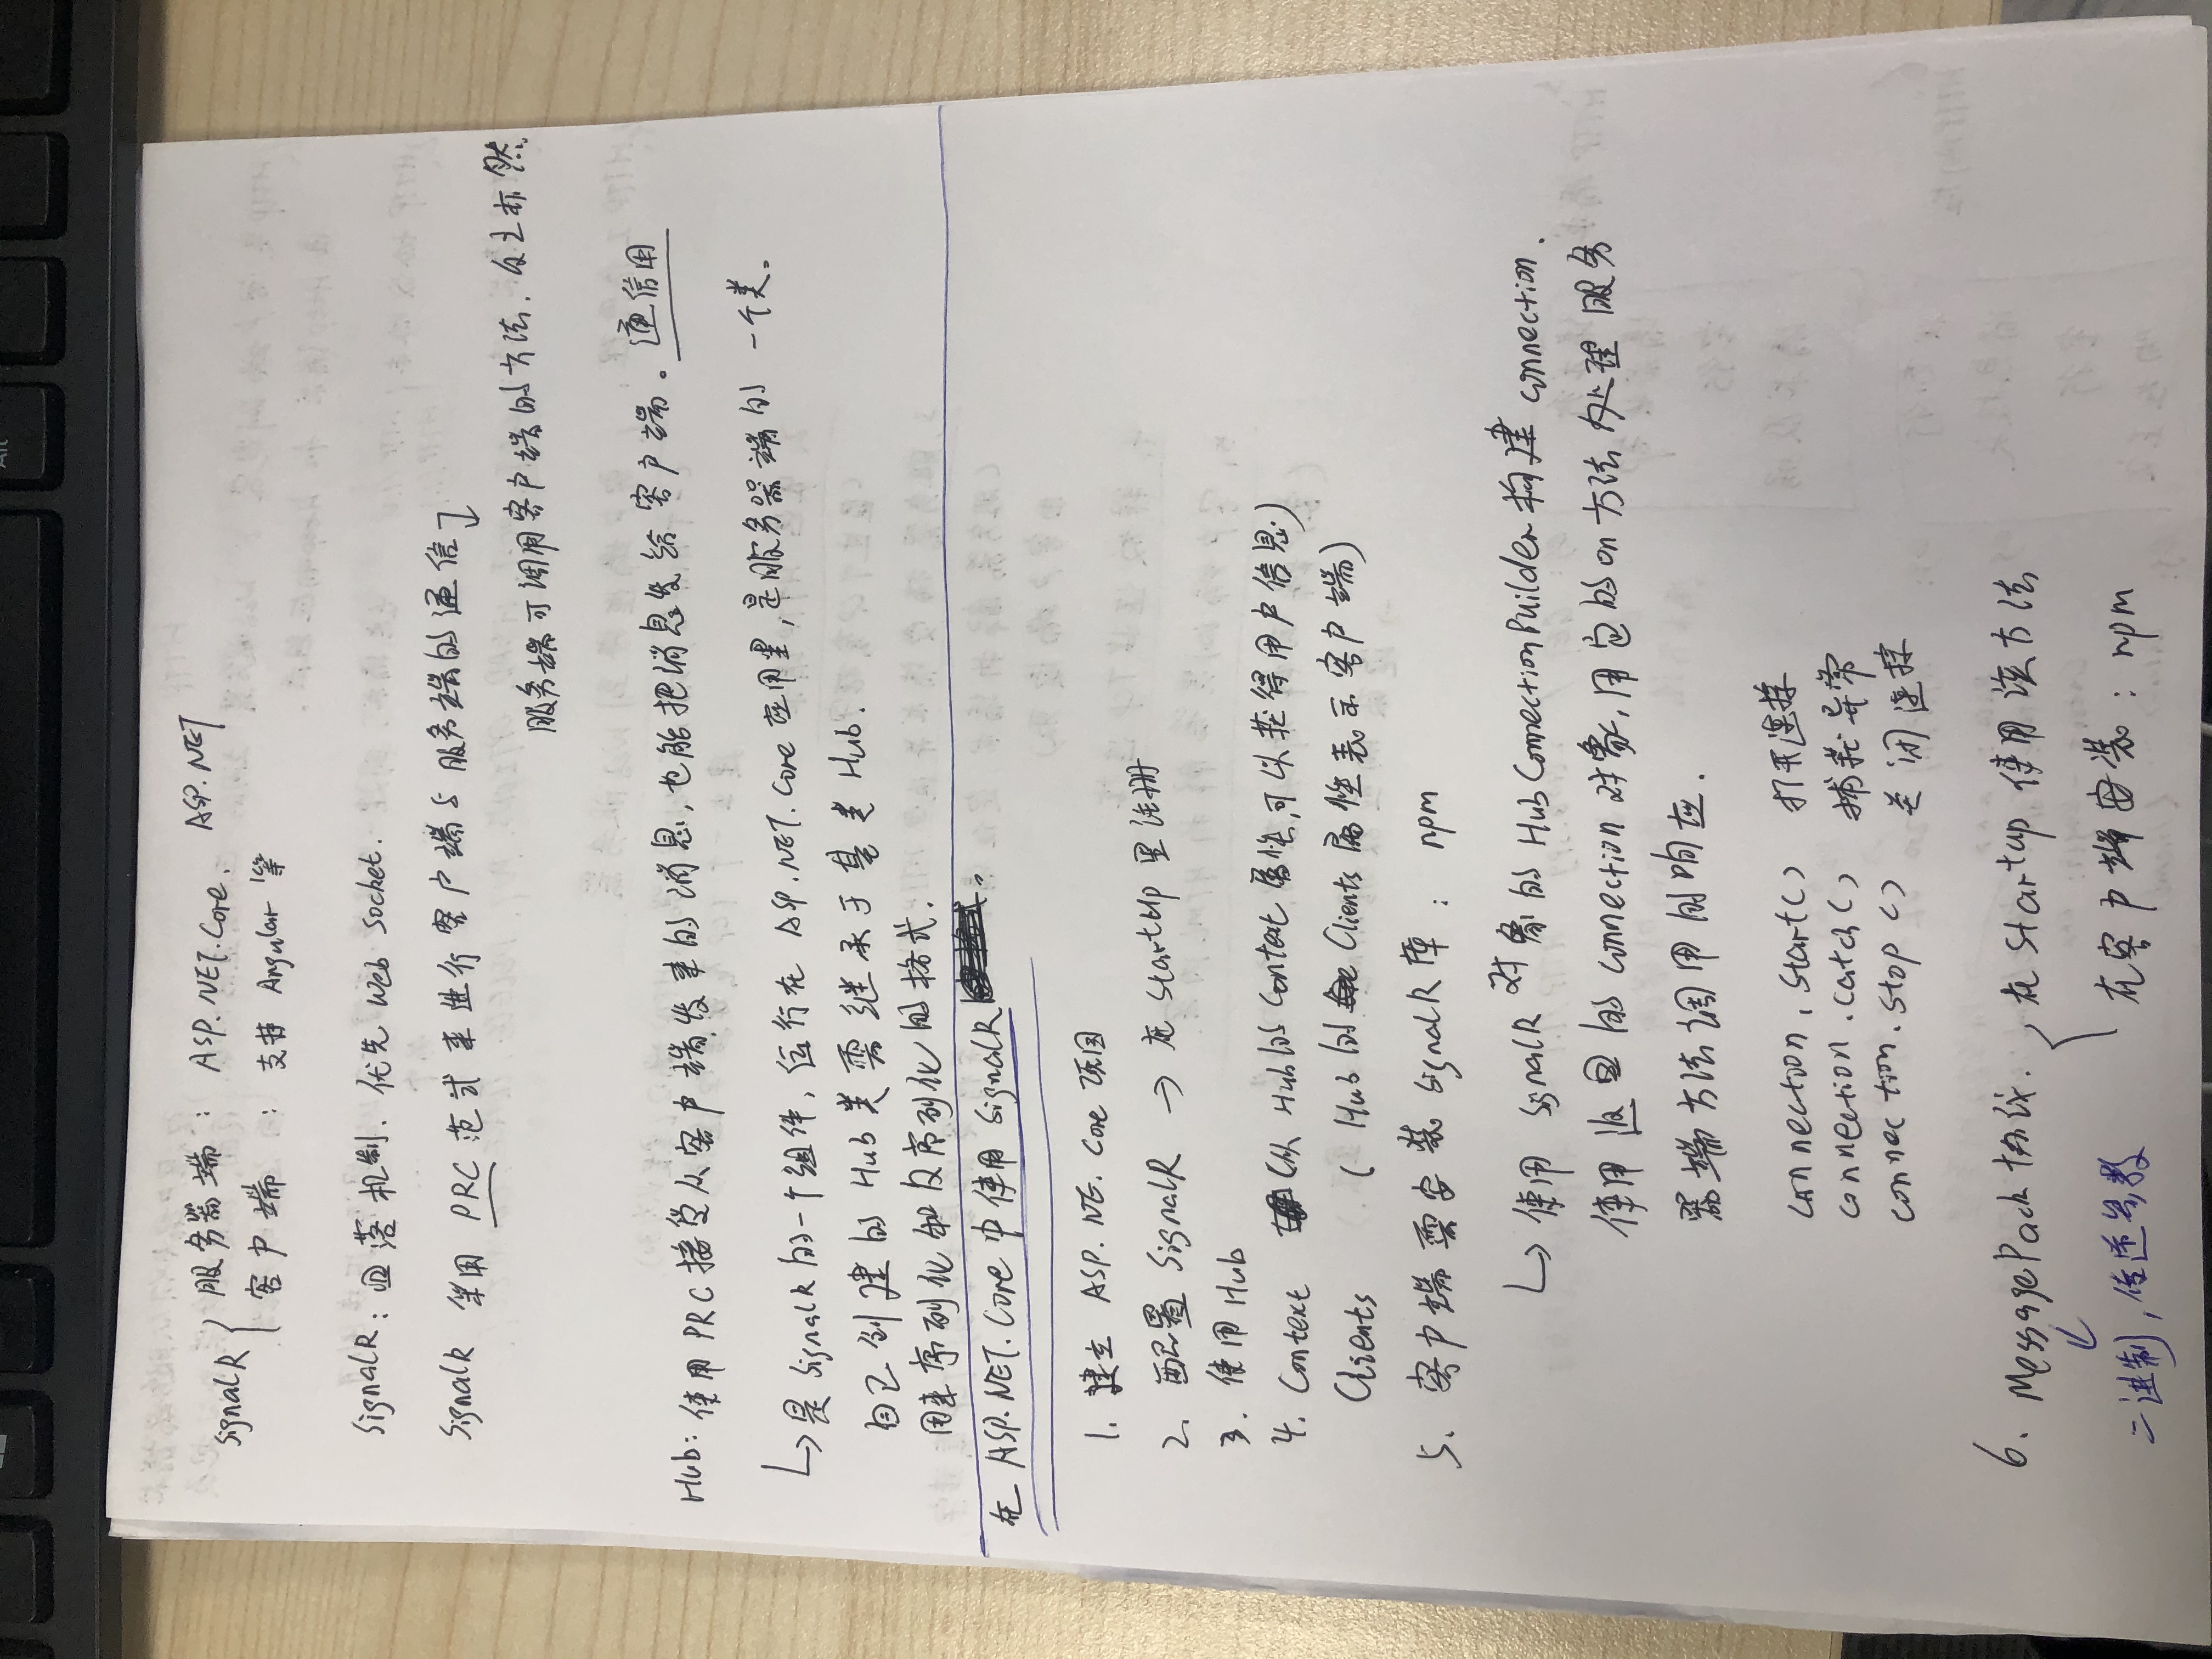 SignalR { 服务器端 : ASP.NET.Core. ASP.NET
客户端 : 支持 Angular 等
SignalR : 回落机制. 优先 Web Socket.
SignalR 采用 PRC 范式来进行客户端与服务端的通信
服务端可调用客户端的方法. 反之亦然.
Hub: 使用PRC接受从客户端发来的消息, 也能把消息发给客户端。通信用
↳ 是SignalR的一个组件, 运行在 ASP.NET.Core应用里, 是服务器端的 一个类.
自己创建的 Hub 类需继承于基类 Hub.
用来序列化和反序列化的格式.
在 ASP.NET.Core 中使用 SignalR
1. 建立 ASP.NE.Core 项目
2. 配置 SignalR → 在 StartUp 里注册
3. 使用 Hub
4. Context (从 Hub的 Context 属性,可以获得用户信息)
Clients ( Hub 的 Clients 属性表示客户端)
5. 客户端需安装 SignalR 库 : npm
↳ 使用 SignalR 对象的 HubConnectionBuilder 构建 connection.
使用返回的 connection 对象, 用它的on方法处理服务
器端方法调用的响应.
connection.start() 打开连接
connection.catch() 捕获异常
connection.stop() 关闭连接
6. MessagePack 协议. { 在 Startup 使用该方法
在客户端安装 : npm
↓
二进制, 传递参数